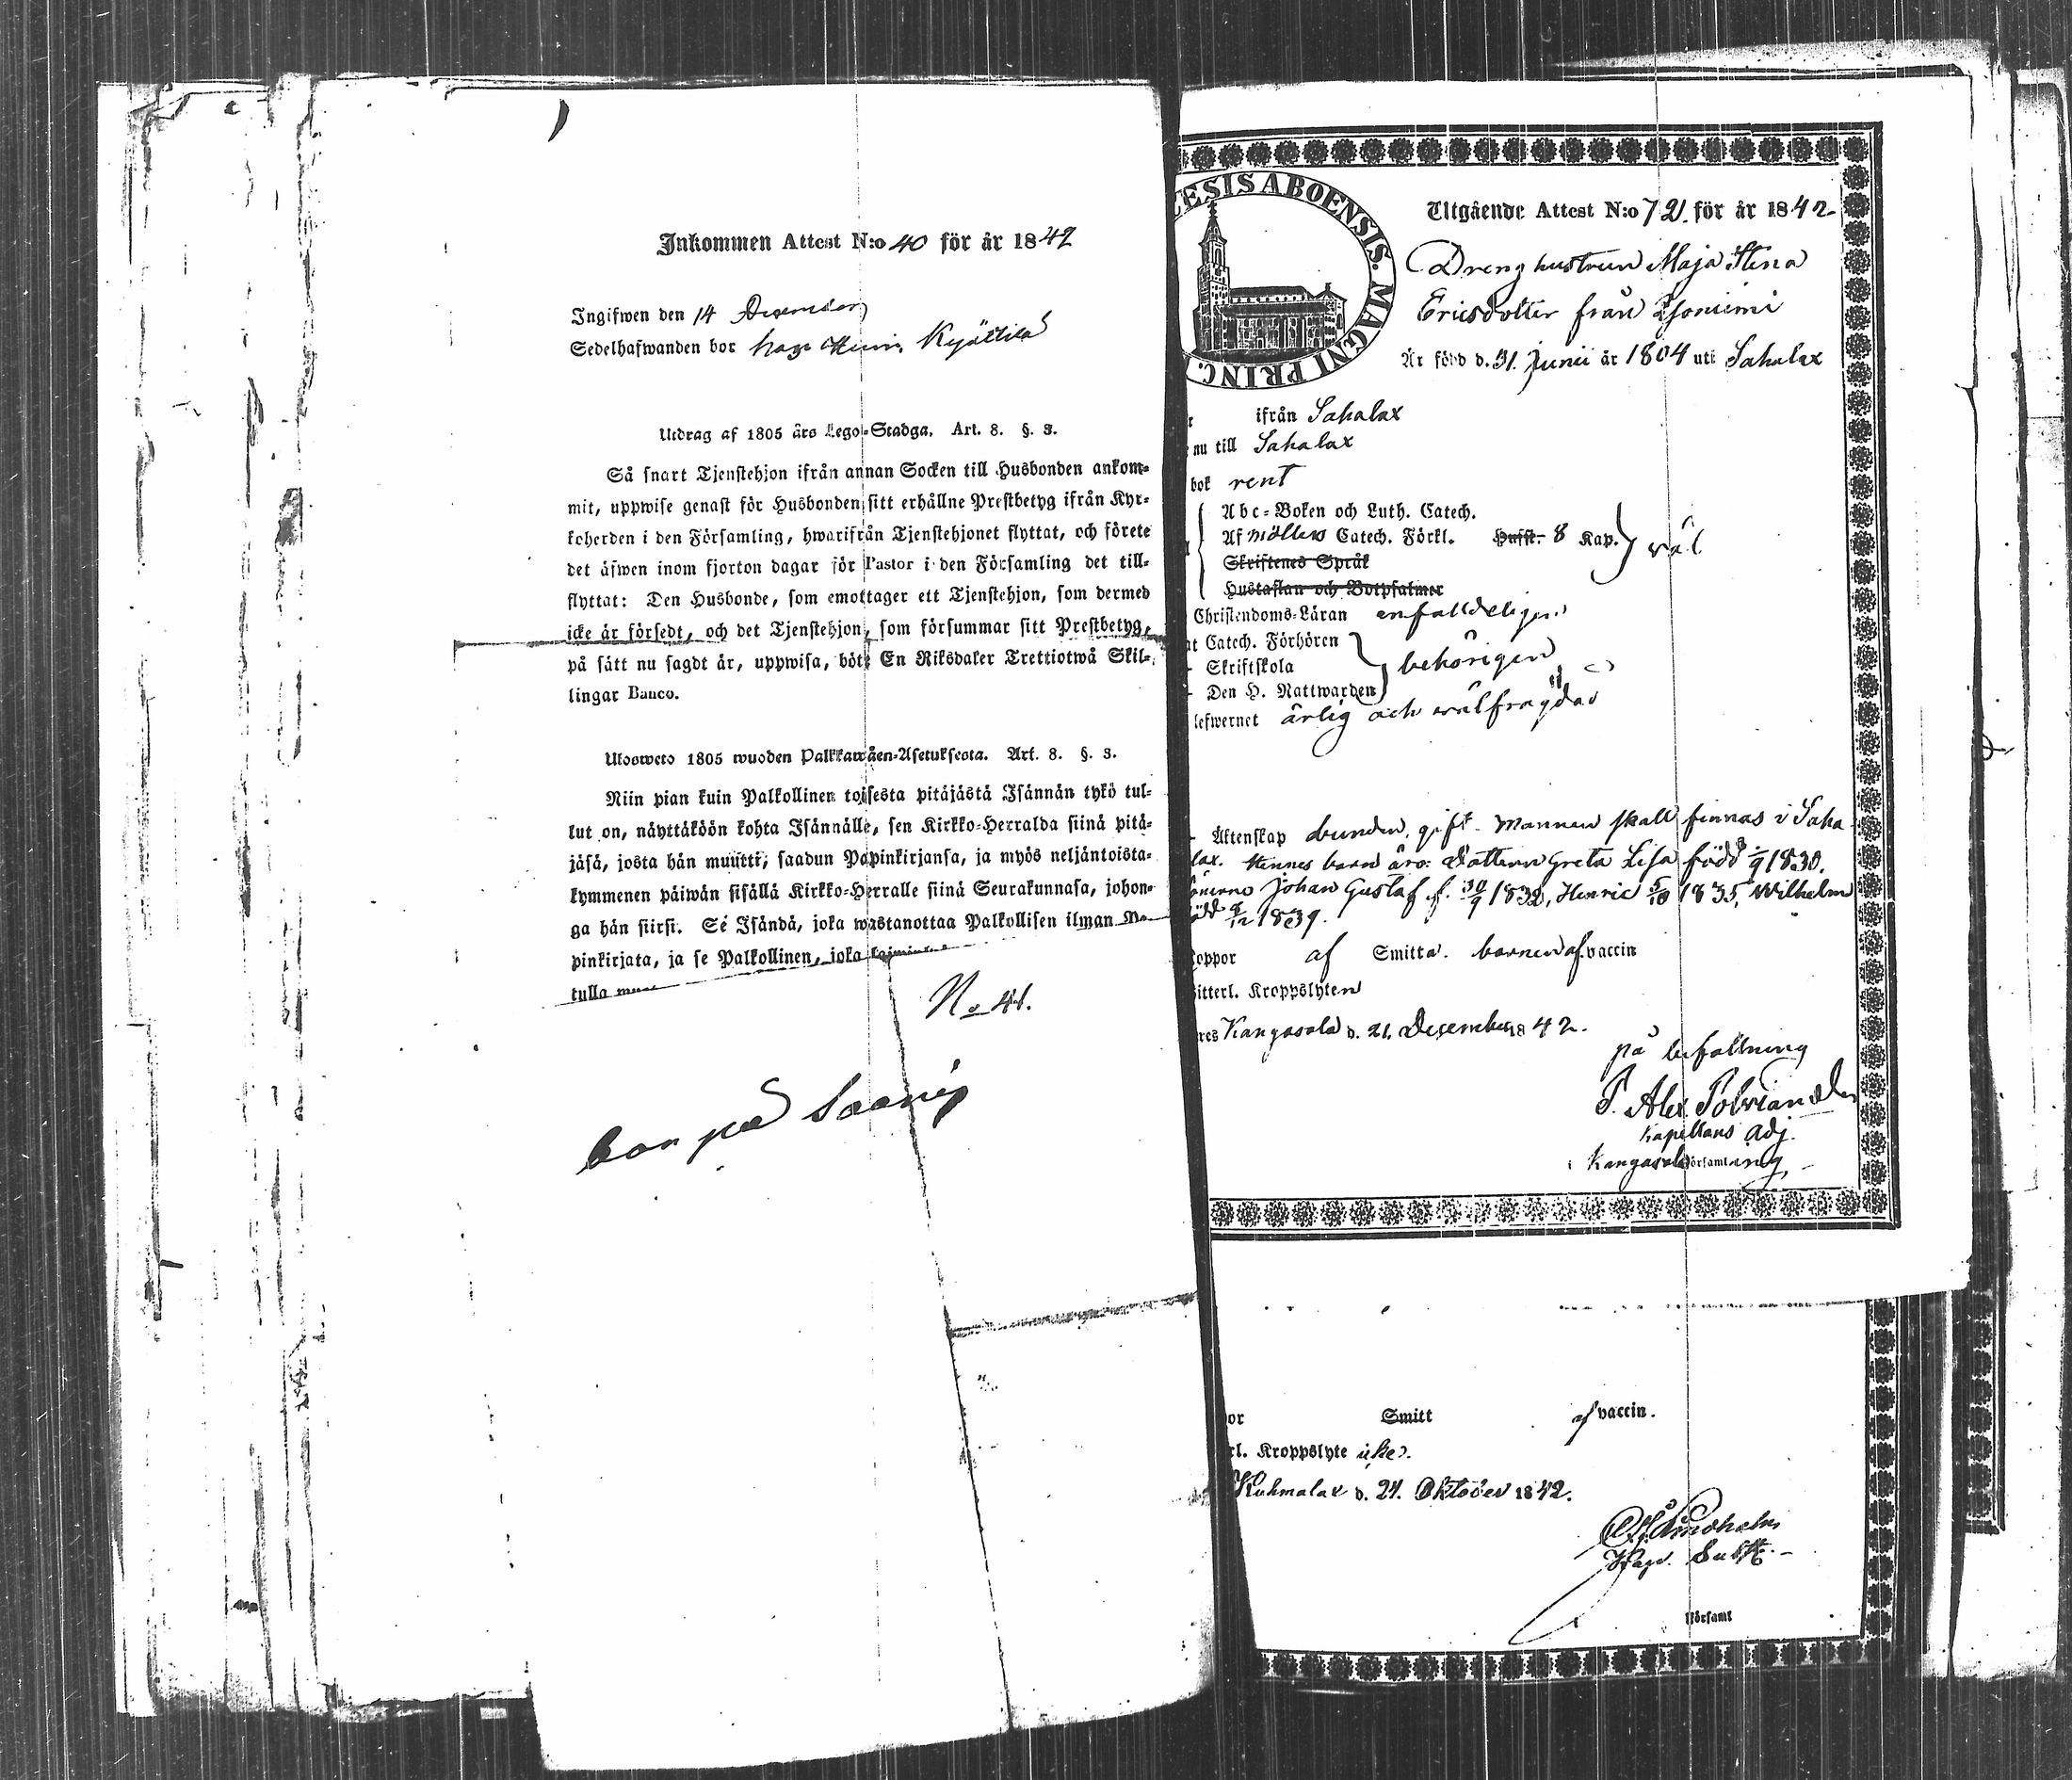 Inkommen Attest N:o 40 för år 1842
Ingifwen den 14 December
Sedelhafwanden bor Kyöttilä
Utdrag af 1805 års Lego-Stadga. Art. 8. §. 3.
Så snart Tjenstehjon ifrån annan Socken till Husbonden ankom-
mit, uppwise genast för Husbonden sitt erhållne Prestbetyg ifrån Kyr-
koherden i den Församling, hwarifrån Tjenstehjonet flyttat, och förete
det äfwen inom fjorton dagar för Pastor i den Församling det till-
flyttat: Den Husbonde, som emottager ett Tjenstehjon, som dermed
icke är försedt, och det Tjenstehjon, som försummar sitt Prestbetyg,
på sätt nu sagdt är, uppwisa, böte En Riksdaler Trettiotwå Skil-
lingar Banco.
Ulosweto 1805 wuoden Palkkawäen-Asetuksesta. Art. 8. §. 3.
Niin pian kuin Palkollinen toisesta pitäjästä Isännän tykö tul-
lut on, näyttäköön kohta Isännälle, sen Kirkko-Herralda siinä pitä-
jäsä, josta hän muutti, saadun Papinkirjansa, ja myös neljäntoista-
kymmenen päiwän sisällä Kirkko-Herralle siinä Seurakunnasa, johon-
ga hän siirsi. Se Isändä, joka wastanottaa Palkollisen ilman Pa-
pinkirjata, ja se Palkollinen, joka
tulla
No 41.
bor på Saarip
ESIS ABOENSIS. MAGNI PRINC.
Utgående Attest N:o 72. för år 1842
Drenghustrun Maja Stina
Ericsdotter från
Är född d. 31. Junii år 1804 uti Sahalax
ifrån Sahalax
nu till Sahalax
bok rent
Abc-Boken och Luth. Catech.
Af Möllers Catech. Förkl. Husst. 8 Kap. väl
Skriftenes Språk
Hustaflan och Botpsalmer
Christendoms-Läran enfaldeligen
at Catech. Förhören
Skriftskola behörigen
Den H. Nattwarden
lefwernet ärlig och välfrägdad
Äktenskap bunden, gift. Mannen skall finnas i Saha
lax. Hennes barn äro: Dottern Greta Lisa född /9 1830.
Sönerne Johan Gustaf f. 30/9 1832, Henric 5/10 1835, Wilhelm
född 8/12 1839.
oppor af Smitta. barnen af vaccin
itterl. Kroppslyten
res Kangasala d. 21. December 1842.
på befallning
P. Alex. Polviander
Kapellans Adj.
Kangasala församling
or Smitt af vaccin.
rl. Kroppslyte icke.
Kuhmalax d. 24. October 1842.
Lindholm
församl